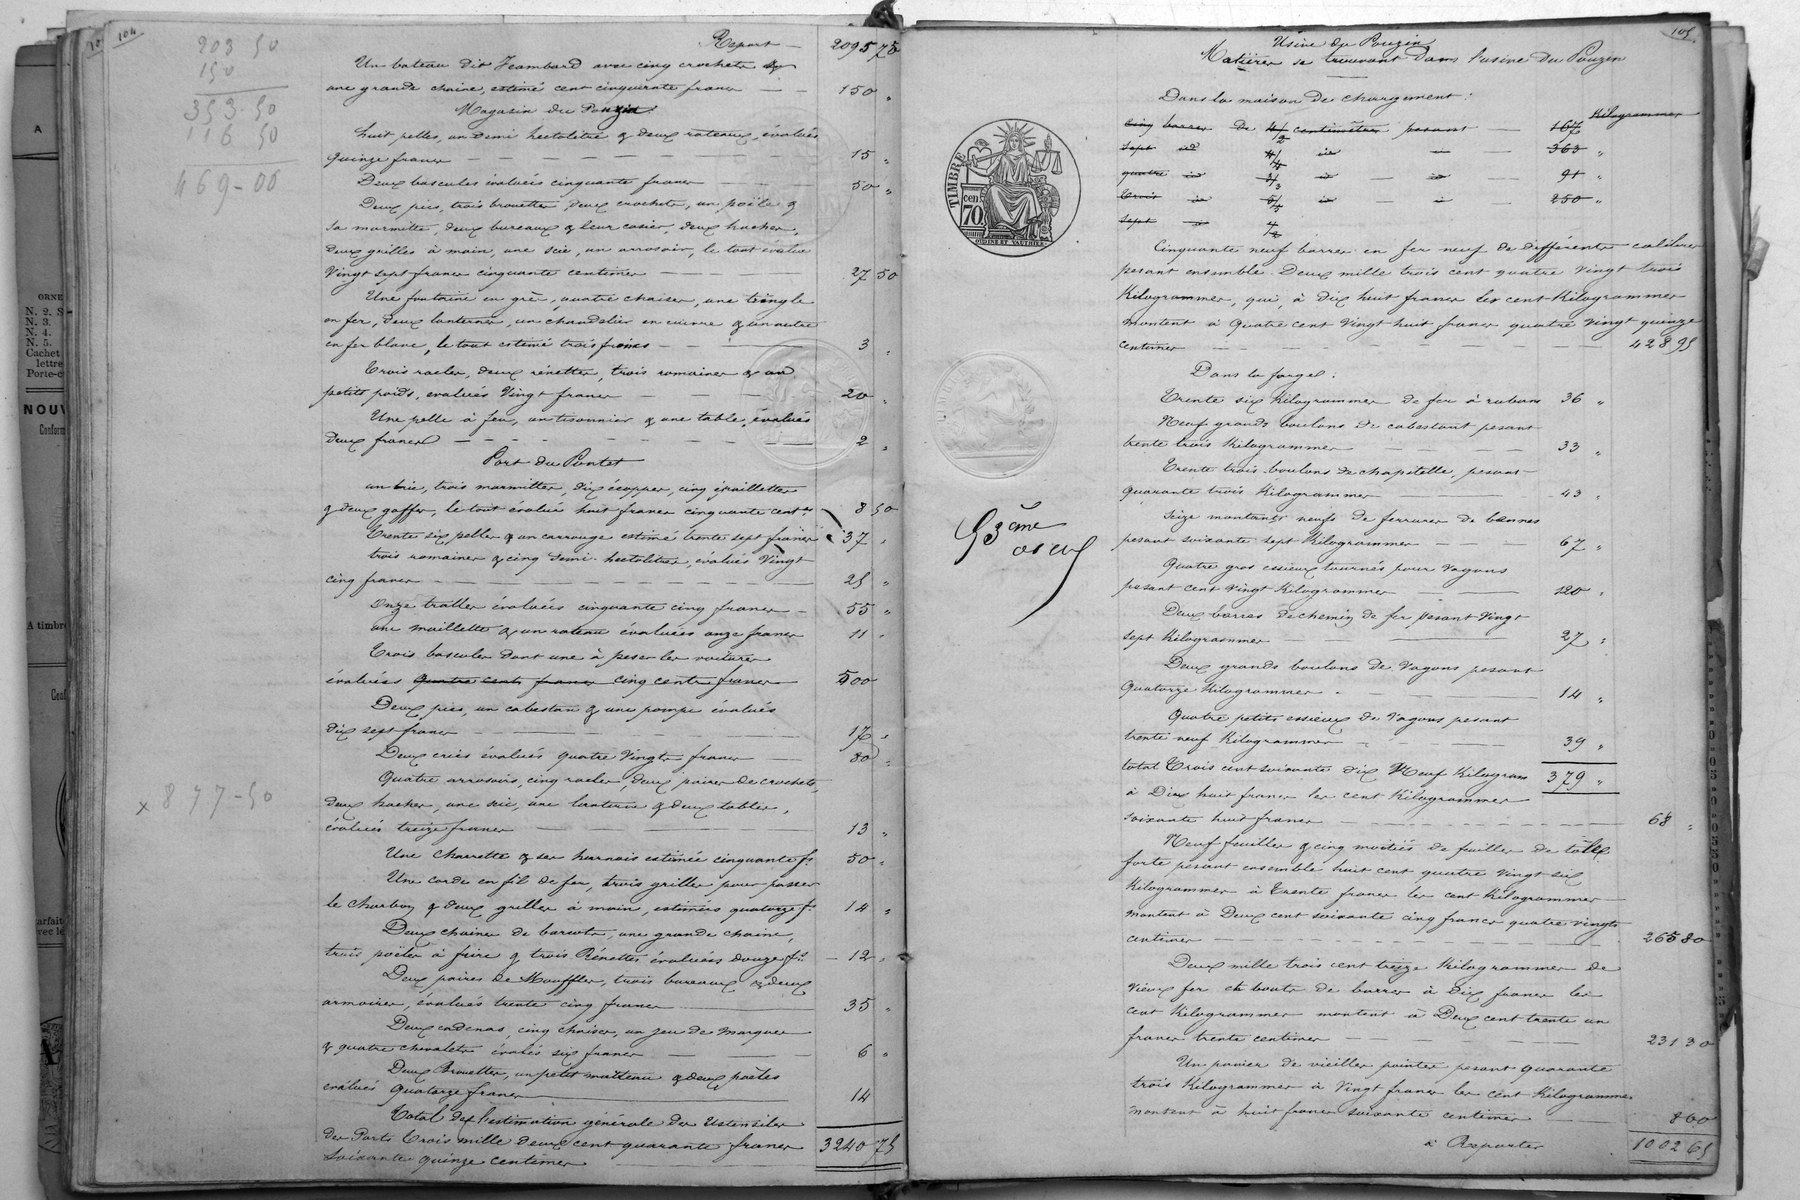 104
203 50
150
353.50
116 50
469-00
x 877-50
Report — 2095 75
Un bateau dit Jeambard avec cinq crochets &
une grande chaine, estimé cent cinquante francs — — 150 "
Magasin du Pouzin.
huit pelles, un demi hectolitre & deux rateaux, évalués
quinze francs — — — — — — — 15 "
Deux bascules évaluées cinquante francs — — — 50 "
Deux pics, trois brouettes deux crochets, un poële &
sa marmitte, deux bureaux & leur casier, deux haches,
deux grilles à main, une scie, un arrosoir, le tout évalué
vingt sept francs cinquante centimes — — — — 27 50
Une fontaine en grè, quatre chaises, une tringle
en fer, deux lanternes, un chandelier en cuivre & un autre
en fer blanc, le tout estimé trois francs — — — 3 "
Trois racles, deux rénettes, trois romaines & un
petits poids, évalués Vingt francs — — — 20 "
Une pelle à feu, un tisonnier & une table, évalués
deux francs — — — — — — — 2 "
Port du Pontet
trois marmittes, dix écoppes, cinq
& deux gaffes, le tout évalué huit francs cinquante centes — 8 50
Trente six pelles & un carrouge estimé trente sept francs 37 "
trois romaines & cinq demi-hectolitres, évalués Vingt
cinq francs — — — — — — — — 25 "
Onze tralles évaluées cinquante cinq francs — 55 "
une maillette & un rateau évaluées onze francs 11 "
Trois bascules dont une à peser les voitures
évaluées quatre cents francs cinq cents francs — 500
Deux pics, un cabestan & une pompe évalués
dix sept francs — — — — — — — 17 "
Deux crics évalués quatre Vingts francs — 80 "
Quatre arrosoirs, cinq racles, deux paires de crochets,
deux haches, une scie, une lanterne & deux tables,
évalués treize francs — — — — — 13 "
Une charrette & ses harnais estimée cinquante fs. 50 "
Une corde en fil de fer, trois grilles pour passer
le charbon & deux grilles à main, estimées quatorze fs. 14 "
Deux chaines de barcots, une grande chaine,
trois poëles à frire & trois Rénettes évaluées douze fs. — 12 "
Deux paires de Mouffles, trois bureaux & deux
armoires, évalués trente cinq francs — 35 "
Deux cadenas, cinq chaises, un jeu de marques
& quatre chevalets évalués six francs — — — 6 "
Deux Brouettes, un petit marteau & deux poëles
évalués quatorze francs — 14
Total de l'estimation générale des Ustensiles
des Ports Trois mille deux cent quarante francs
soixante quinze centimes — 3240 75
105
Usine du Pouzin
Matières se trouvant dans l'usine du Pouzin
Dans la maison de chargement :
Kilogrammes
Cinq barres de 4/2 centimètres pesant — 167
sept id 4/4 id — 363 "
quatre id 3/3 id — id — 91 "
Trois id 6/5 id — id — 250 "
sept id 4/2
Cinquante neuf barres en fer neuf de différents calibres
pesant ensemble Deux mille trois cent quatre vingt trois
Kilogrammes, qui, à dix huit francs les cent Kilogrammes
montent à Quatre cent vingt huit francs quatre vingt quinze
centimes — — — — — — — 428 95
Dans la forge :
Trente six Kilogrammes de fer à rubans 36 "
Neuf grands boulons de cabestant pesant
trente trois Kilogrammes — — 33 "
Trente trois boulons de chapitelle, pesant
quarante trois Kilogrammes — — 43 "
Seize montants neufs de ferrures de bennes
pesant soixante sept Kilogrammes — — 67 "
Quatre gros essieux tournés pour Vagons
pesant cent vingt Kilogrammes — — 120 "
Deux barres de chemin de fer pesant Vingt
sept Kilogrammes — — 27 "
Deux grands boulons de Vagons pesant
Quatorze Kilogrammes — — 14 "
Quatre petits essieux de Vagons pesant
trente neuf Kilogrammes — — 39 "
total Trois cent soixante dix Neuf Kilogram 379 "
à Dix huit francs les cent Kilogrammes
soixante huit francs — — — — 68 "
Neuf feuilles & cinq moitiés de feuilles de tôle
forte pesant ensemble huit cent quatre vingt six
Kilogrammes à Trente francs les cent Kilogrammes
montent à Deux cent soixante cinq francs quatre vingts
centimes — — — — — — 265 80
Deux mille trois cent treize Kilogrammes de
vieux fer et bouts de barres à Dix francs les
cent Kilogrammes montent à Deux cent trente un
francs trente centimes — — — — 231 30
Un panier de vieilles pointes pesant quarante
trois Kilogrammes à Vingt francs les cent Kilogrammes
montant à huit francs soixante centimes — 8 60
à Reporter 1002 65
TIMBRE
70
cen
53ème